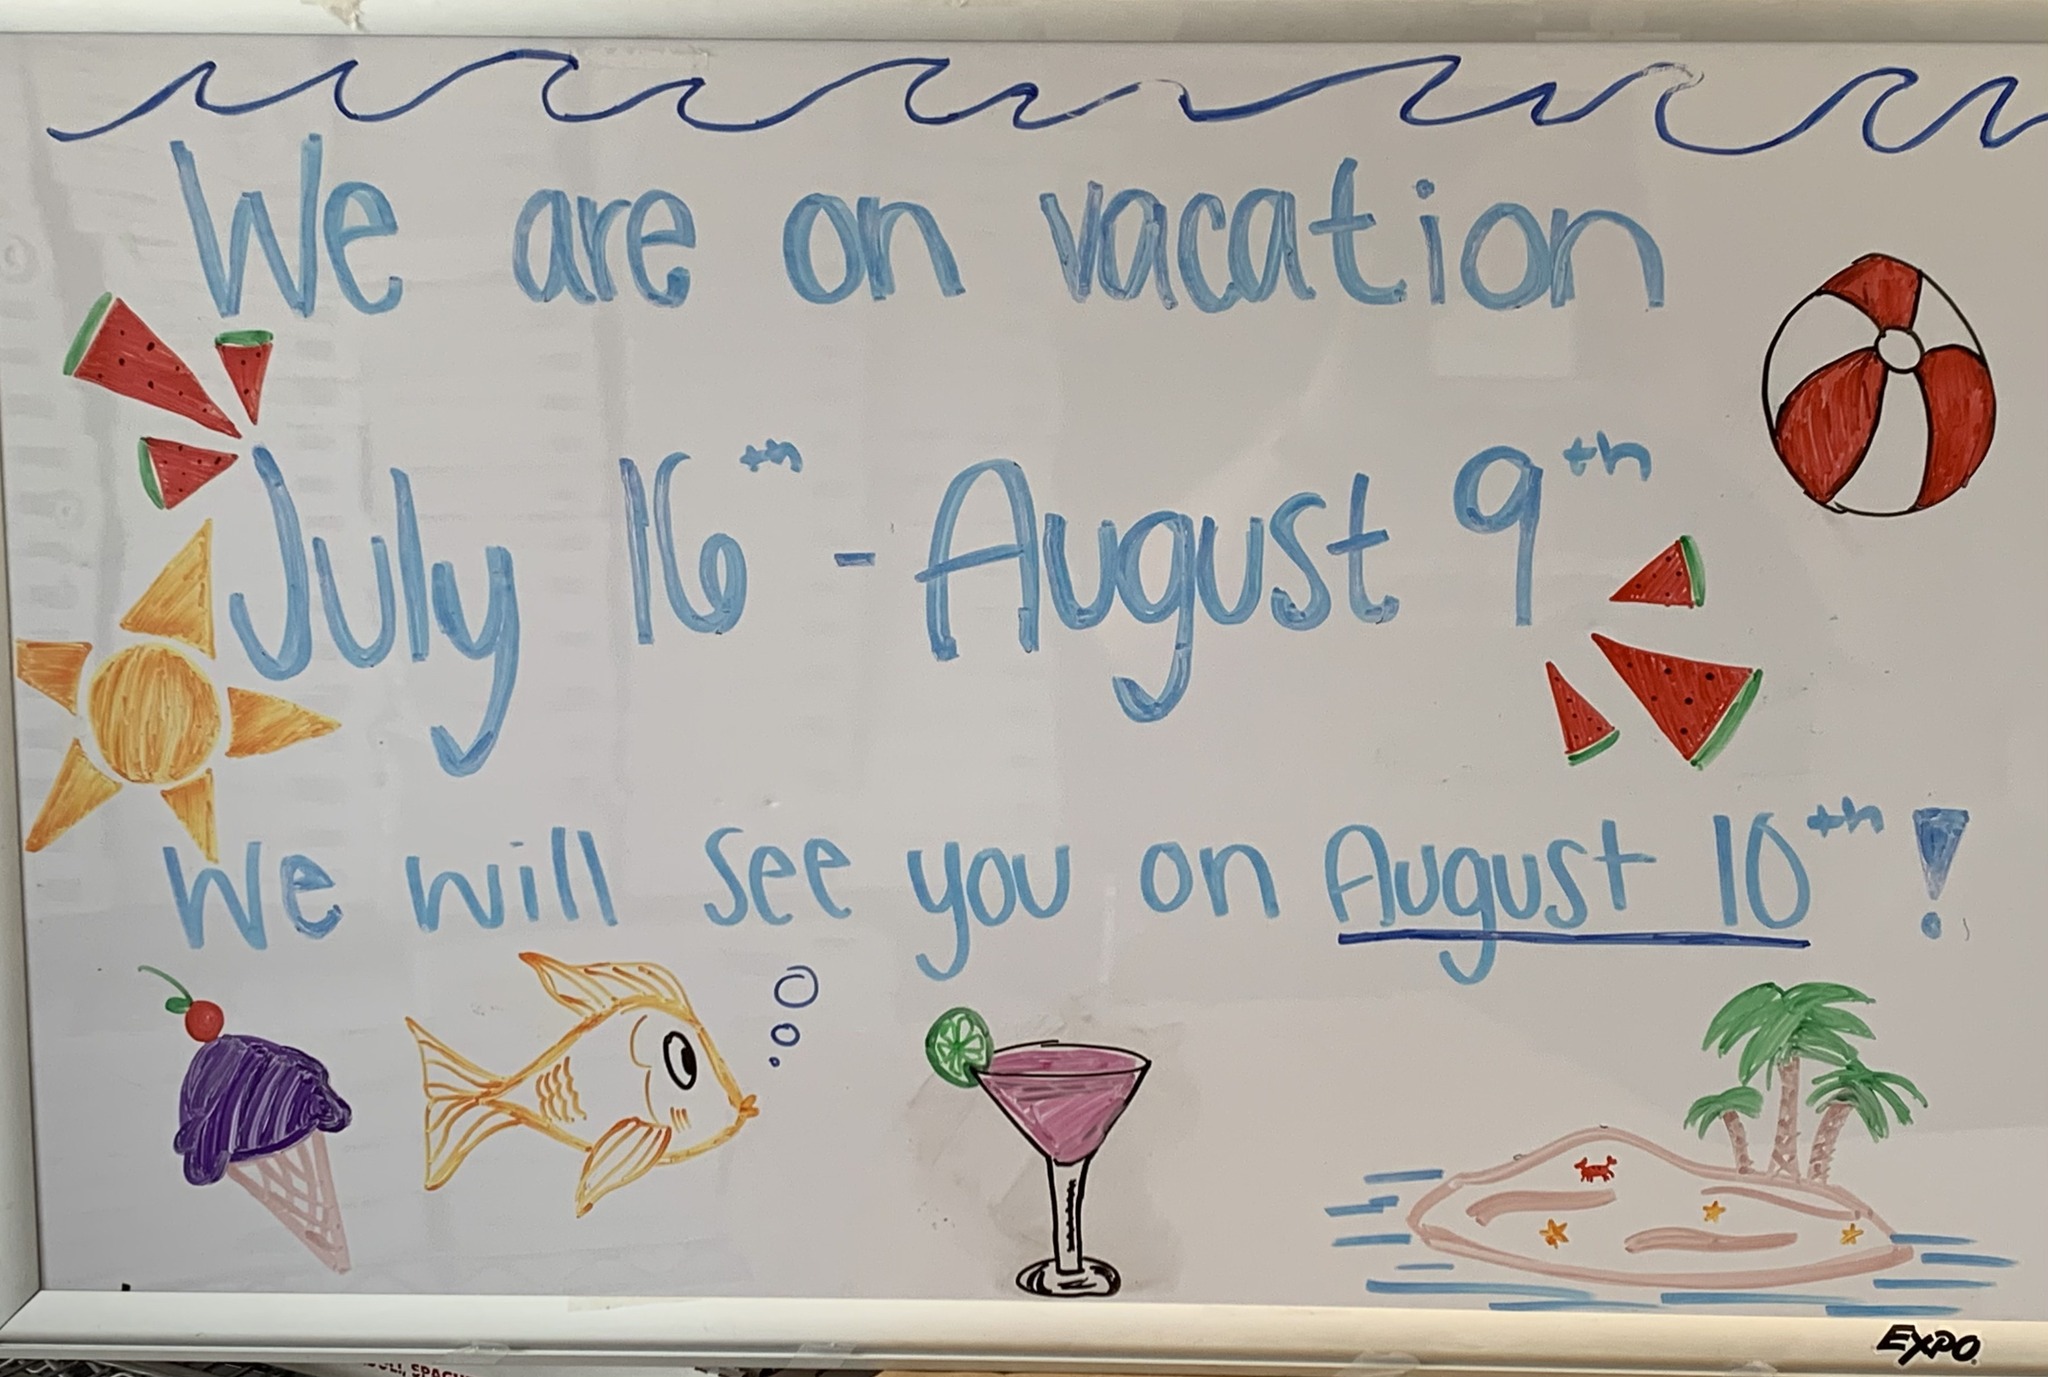 We are on vacation
July 16th - August 9th
We will see you on August 10th!
EXPO